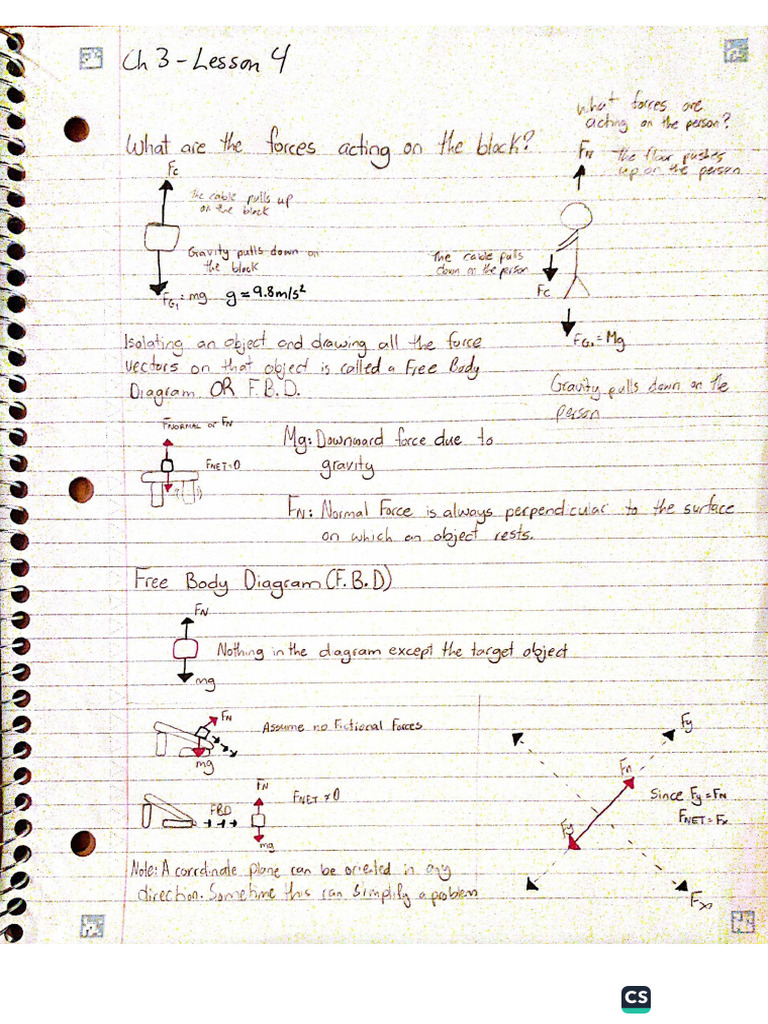 Ch 3 - Lesson 4
What are the forces acting on the block?
Fc
The cable pulls up
on the block
Gravity pulls down on
the block
FG1 = mg g = 9.8m/s²
What forces are
acting on the person?
FN The floor pushes
up on the person
The cable pulls
down on the person
Fc
FG2 = Mg
Gravity pulls down on the
person
Isolating an object and drawing all the force
vectors on that object is called a Free Body
Diagram OR F.B.D.
FNORMAL or FN
FNET = 0
Mg: Downward force due to
gravity
FN: Normal Force is always perpendicular to the surface
on which an object rests.
Free Body Diagram (F.B.D)
FN
Nothing in the diagram except the target object
mg
FN
Assume no Fictional Forces
mg
FBD
FN
FNET ≠ 0
mg
Fy
Fn
Since Fy = FN
FNET = Fx
Fg
Fx
Note: A corrdinate plane can be oriented in any
direction. Sometime this can simplify a problem
CS